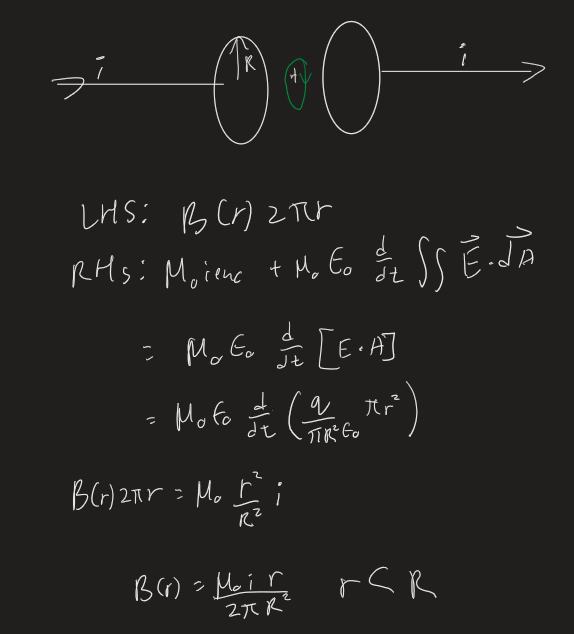 i R + i
LHS: B(r) 2πr
RHS: μ₀ienc + μ₀ϵ₀ d/dt ∬ E⃗·dA⃗
= μ₀ϵ₀ d/dt [E·A]
= μ₀ϵ₀ d/dt (q/(πR²ϵ₀) πr²)
B(r)2πr = μ₀ r²/R² i
B(r) = μ₀ i r/(2πR²) r < R